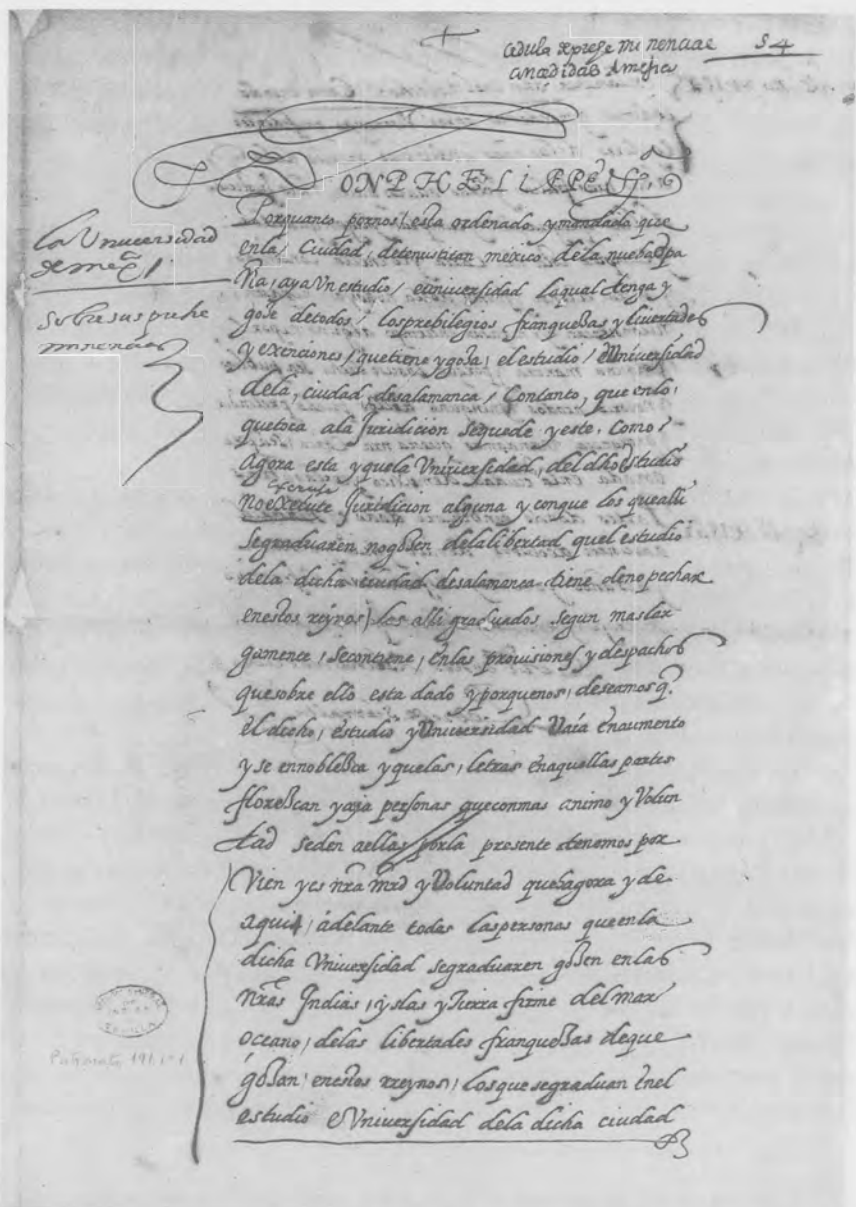 cedula de prehe mi nencias 54
anadidas Amexico
DON PHELIPPE
la Uniuersidad
de mex.co
sobre sus prehe
minencias
Por quanto por nos / esta ordenado y mandado que
en la / Ciudad / de tenustitan mexico de la nueba spa
ña / aya Un estudio / euniuersidad la qual tenga y
goze de todos / los prebilegios franquezas y liuertades
y exenciones / que tiene y goza / el estudio / e Uniuersidad
de la / ciudad / de salamanca / Con tanto / que en lo /
que toca a la Juridicion se quede y este. Como /
Agora esta y que la Uniuersidad / del dho estudio
no execute Juridicion alguna y con que los que alli
execute
se graduaren no gozen de la libertad que el estudio
de la dicha ciudad de salamanca tiene de no pechar
en estos reynos / los alli graduados segun mas lar
gamente / se contiene / en las provisiones y despachos
que sobre ello esta dado y porque nos / deseamos q.
el dicho / estudio y Uniuersidad Vaia en aumento
y se ennoblezca y que las / letras en aquellas partes
florezcan y aya personas que con mas animo y Volun
tad se den a ellas por la presente tenemos por
Vien y es nra mrd y Voluntad que agora y de
aqui / adelante todas las personas que en la
dicha Uniuersidad se graduaren gozen en las
nras Indias / yslas y Tierra firme del mar
oceano / de las libertades franquezas de que
gozan / en estos rreynos / los que se graduan en el
estudio e Uniuersidad de la dicha ciudad
INDIAS
SEVILLA
Patronato 191